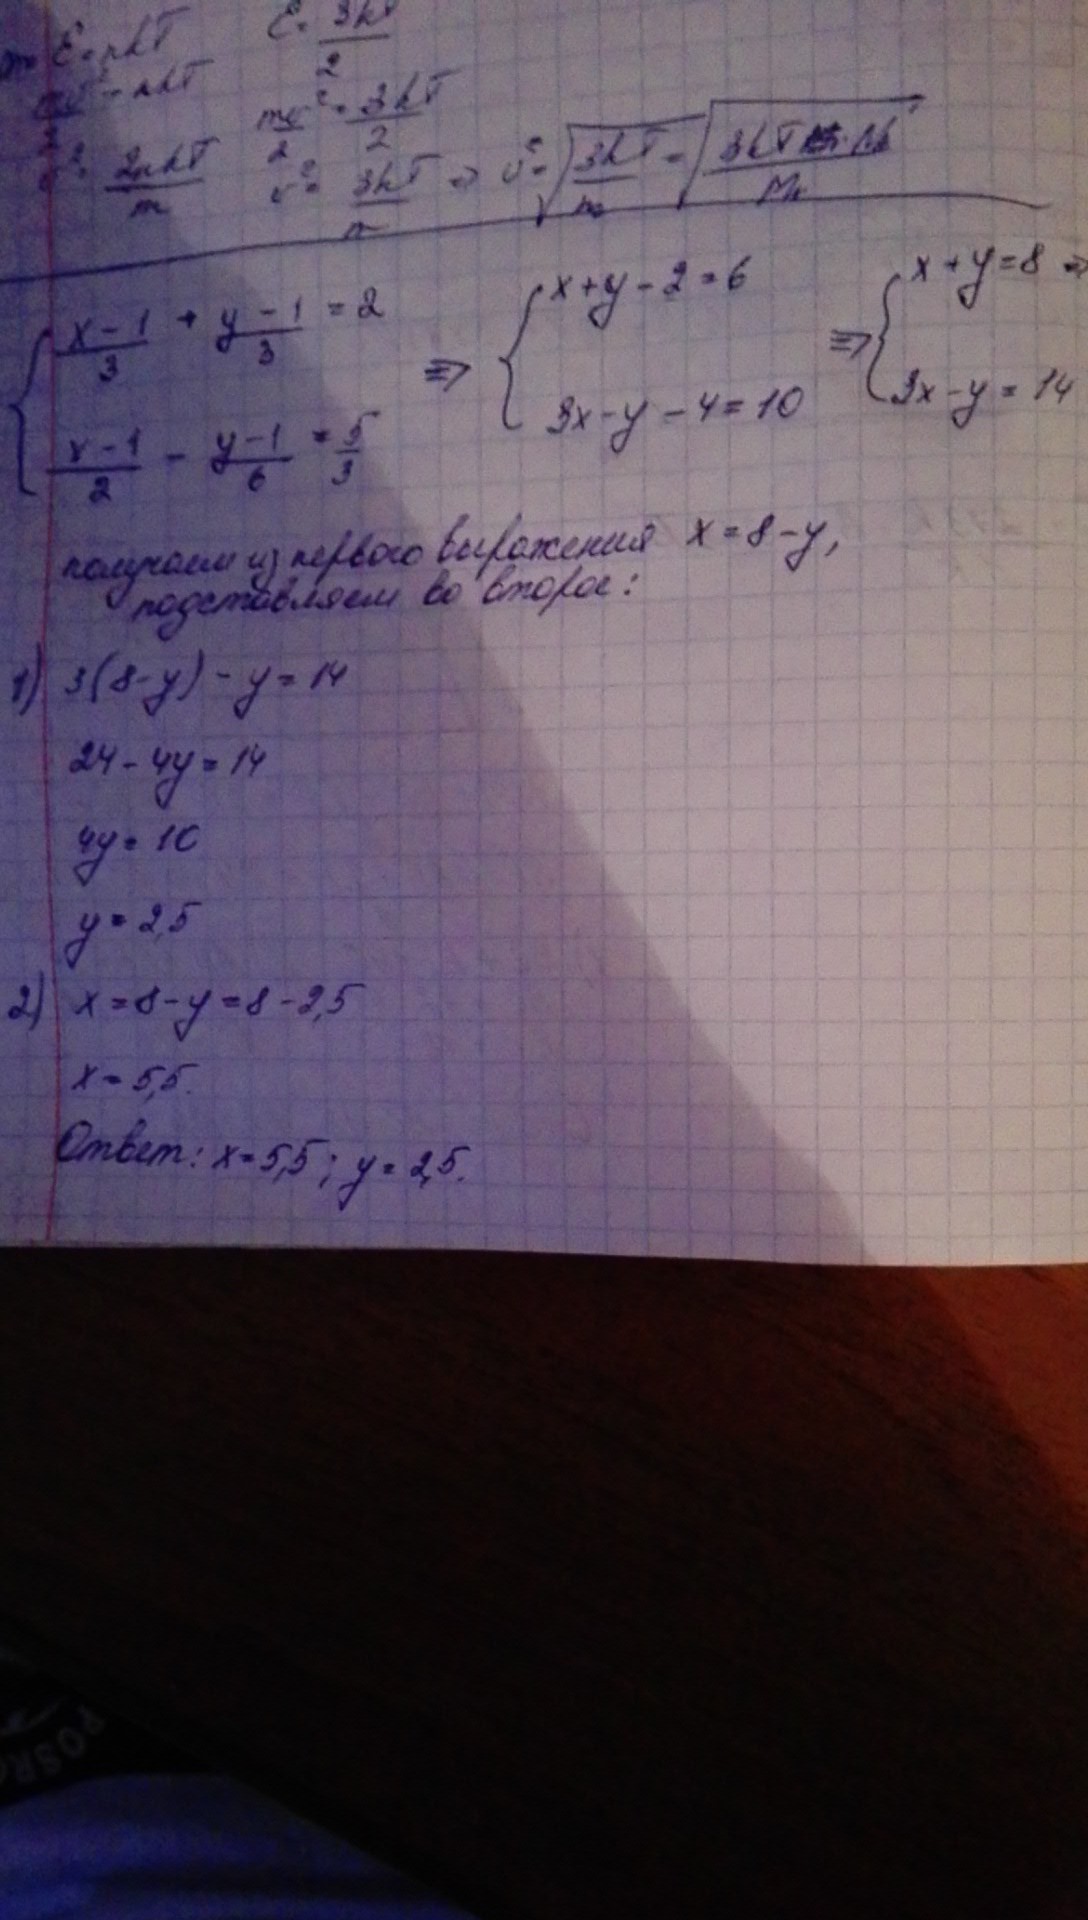 E = nkT   E = 3kT/2
mv²/2 = nkT   mv²/2 = 3kT/2
v² = 2nkT/m   v² = 3kT/m ⇒ v = √(3kT/m) = √(3kT
{ (x-1)/3 + (y-1)/3 = 2 ⇒ { x+y-2=6 ⇒ { x+y=8 ⇒
(x-1)/2 - (y-1)/6 = 5/3   3x-y-4=10   3x-y=14
получаем из первого выражения x=8-y,
подставляем во второе:
1) 3(8-y)-y=14
24-4y=14
4y=10
y=2,5
2) x=8-y=8-2,5
x=5,5.
Ответ: x=5,5; y=2,5.